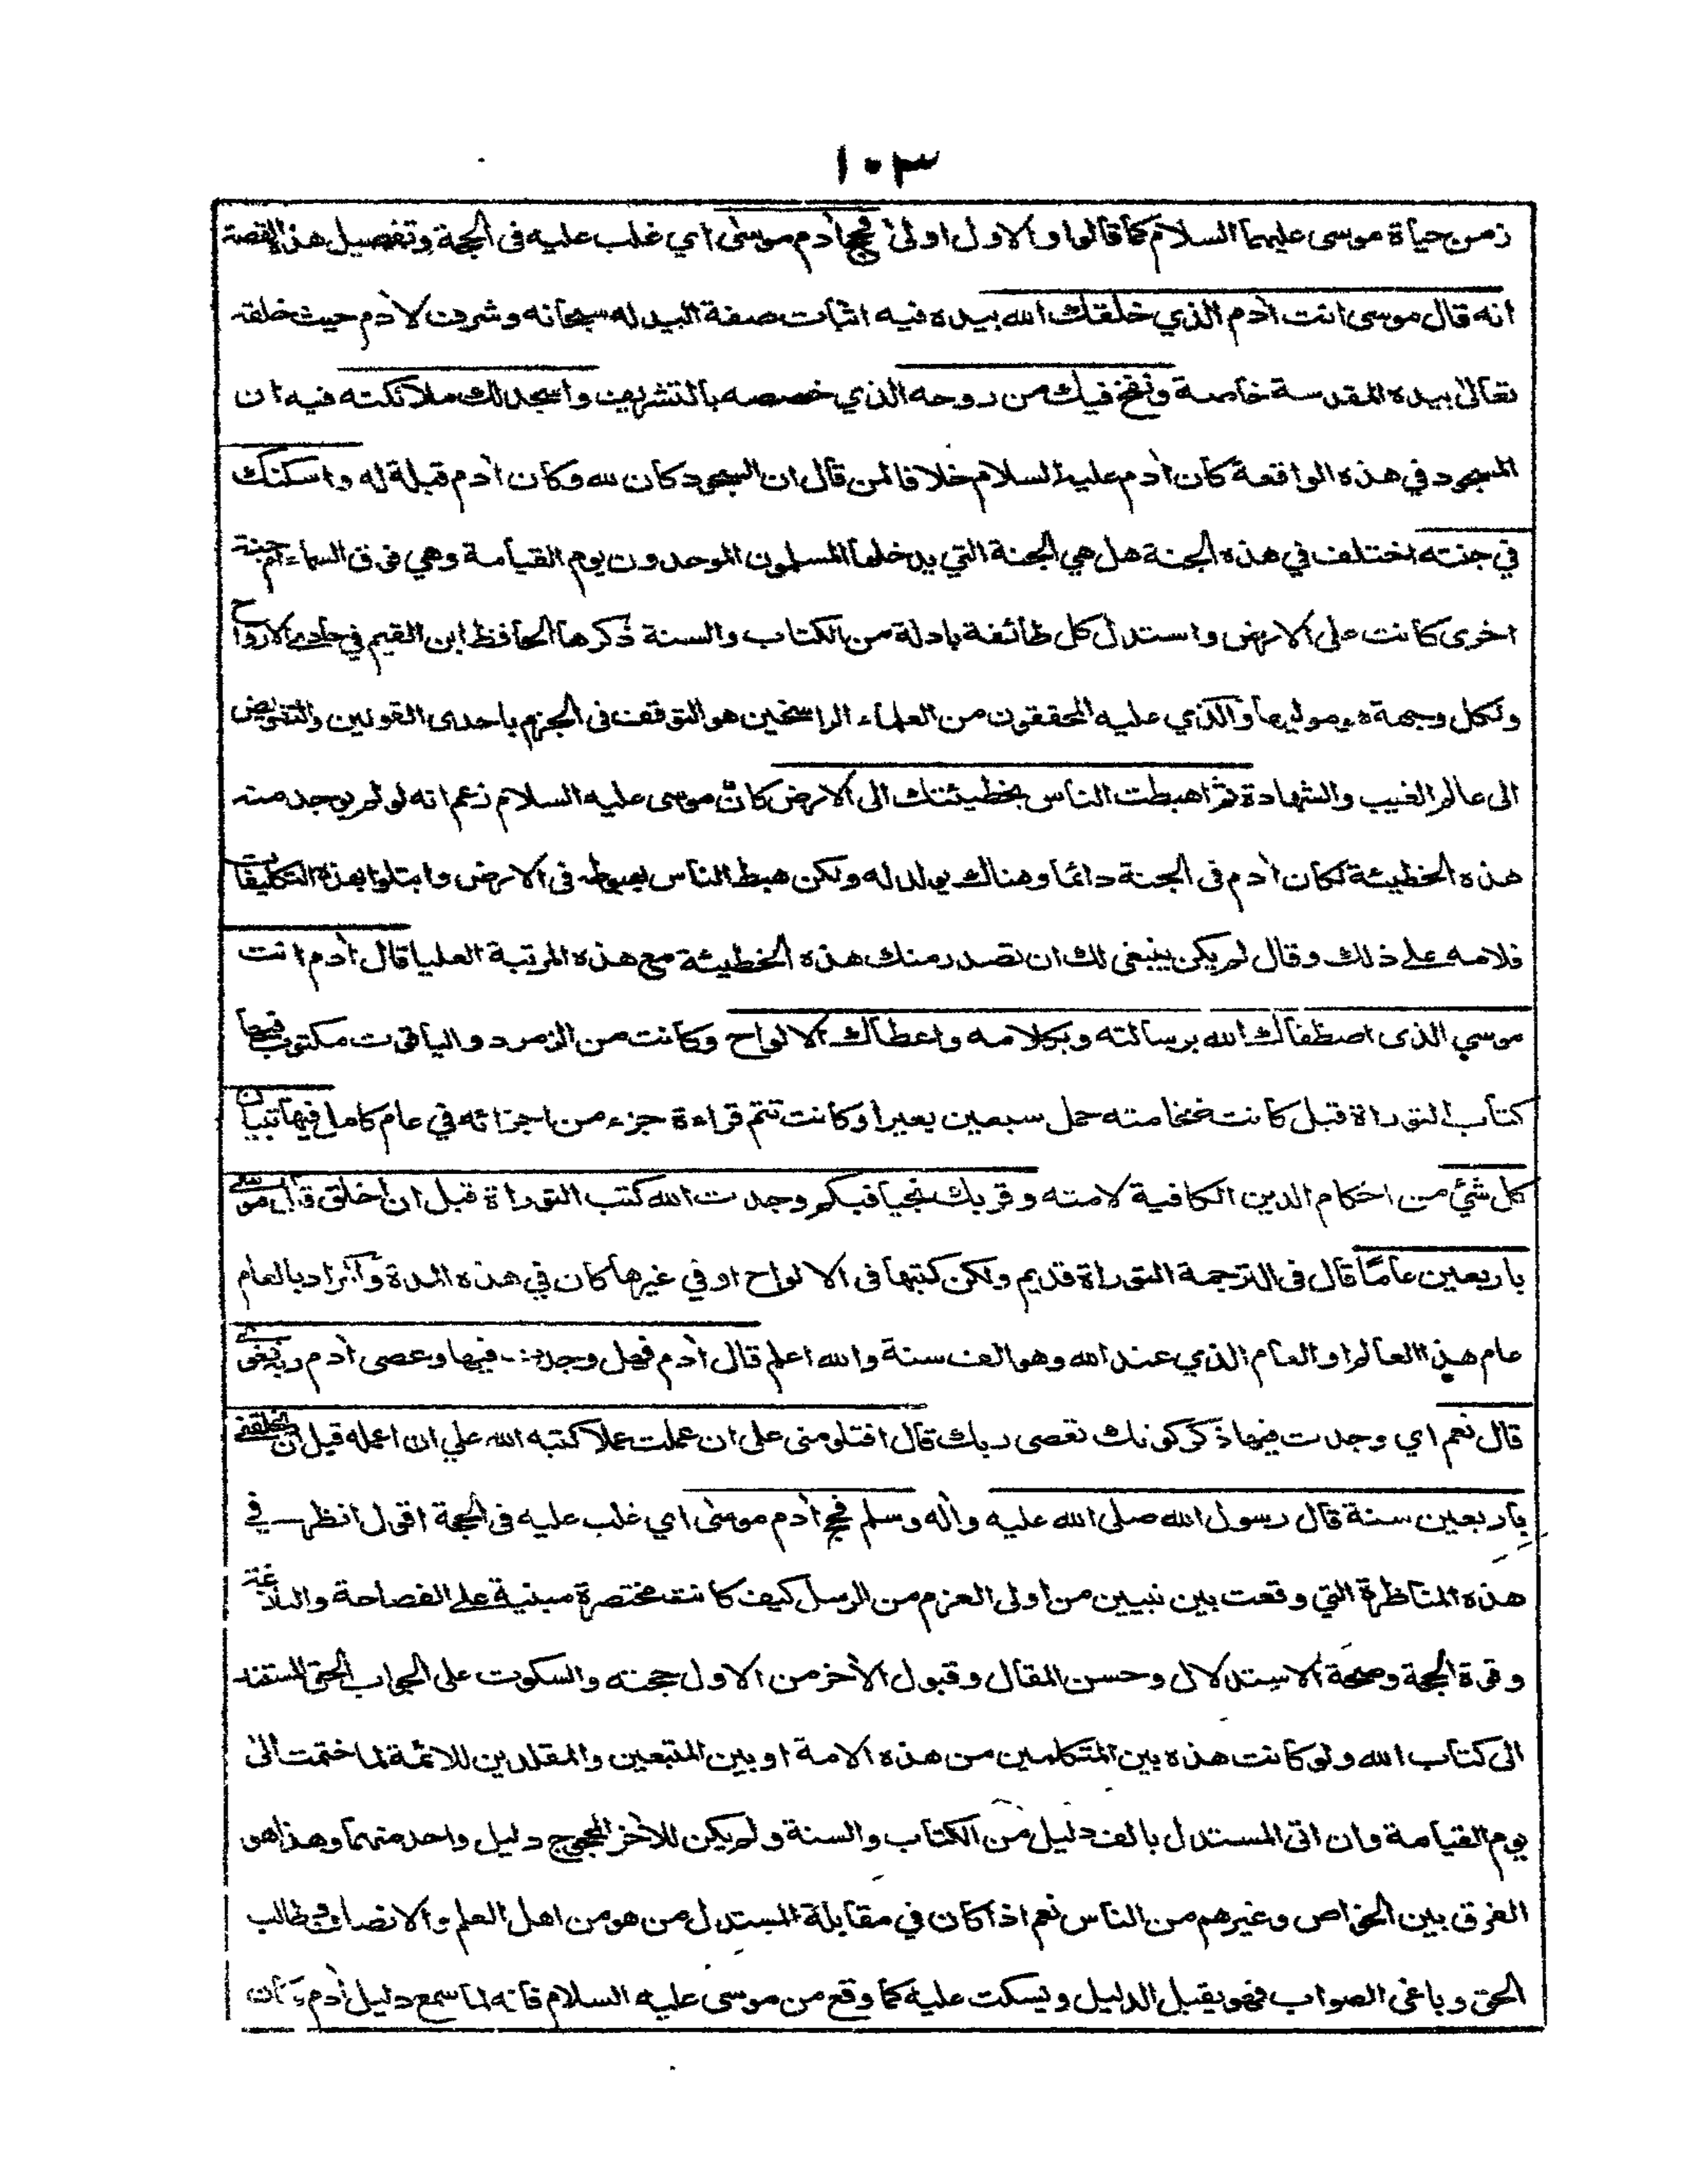 ١٠٣
زمن حياة موسى عليهما السلام كما قالوا والاول اولى فحج ادم موسى اي غلب عليه فى الحجة وتفصيل هذه القصة
انه قال موسى انت أدم الذي خلقك الله بيده فيه اثبات صفة اليد له سبحانه وشرف لأدم حيث خلقه
تعالى بيده المقدسة خاصة ونفخ فيك من روحه الذي خصصه بالتشريف واسجد لك ملائكته فيه ان
المسجود في هذه الواقعة كان أدم عليه السلام خلافا لمن قال ان السجود كان لله وكان أدم قبلة له واسكنك
في جنته اختلف في هذه الجنة هل هي الجنة التي يدخلها المسلمون الموحدون يوم القيامة وهي فوق السماء ام جنة
اخرى كانت على الارض واستدل كل طائفة بادلة من الكتاب والسنة ذكرها الحافظ ابن القيم في حادي الارواح
ولكل وجهة هو موليها والذي عليه المحققون من العلماء الراسخين هو التوقف فى الجزم باحدى القولين والتفويض
الى عالم الغيب والشهادة ثم اهبطت الناس بخطيئتك الى الارض كان موسى عليه السلام زعم انه لو لم يوجد منه
هذه الخطيئة لكان أدم فى الجنة دائما وهناك يولد له ولكن هبط الناس بهبوطه فى الارض وابتلوا بهذه التكليفات
فلامه على ذلك وقال لم يكن ينبغى لك ان تصدر منك هذه الخطيئة مع هذه المرتبة العليا قال أدم انت
موسي الذى اصطفاك الله برسالته وبكلامه واعطاك الالواح وكانت من الزمرد والياقوت مكتوب فيها
كتاب التوراة قبل كانت ضخامته حمل سبعين بعيرا وكانت تتم قراءة جزء من اجزائه في عام كامل فيها تبيان
كل شئ من احكام الدين الكافية لامته وقربك نجيا فبكم وجدت الله كتب التوراة قبل ان اخلق قال موسى
باربعين عاما قال فى الترجمة التوراة قديم ولكن كتبها فى الالواح او في غيرها كان في هذه المدة والمراد بالعام
عام هذا العالم او العام الذي عند الله وهو الف سنة والله اعلم قال أدم فهل وجدت فيها وعصى أدم ربه فغوى
قال نعم اي وجدت فيها ذكر كونك تعصى ربك قال افتلومنى على ان عملت عملا كتبه الله علي ان اعمله قبل ان يخلقني
باربعين سنة قال رسول الله صلى الله عليه وأله وسلم فحج أدم موسى اي غلب عليه فى الحجة اقول انظر في
هذه المناظرة التي وقعت بين نبيين من اولى العزم من الرسل كيف كانت مختصرة مبنية على الفصاحة والبلاغة
وقوة الحجة وصحة الاستدلال وحسن المقال وقبول الأخر من الاول حجته والسكوت على الجواب الحق المستند
الى كتاب الله ولو كانت هذه بين المتكلمين من هذه الامة او بين المتبعين والمقلدين للائمة لما ختمت الى
يوم القيامة وان اتى المستدل بالف دليل من الكتاب والسنة ولم يكن للأخر المحجوج دليل واحد منهما وهذا هو
الفرق بين الخواص وغيرهم من الناس نعم اذا كان في مقابلة المستدل من هو من اهل العلم والانصاف وطالب
الحق وباغى الصواب فهو يقبل الدليل ويسكت عليه كما وقع من موسى عليه السلام فانه لما سمع دليل أدم